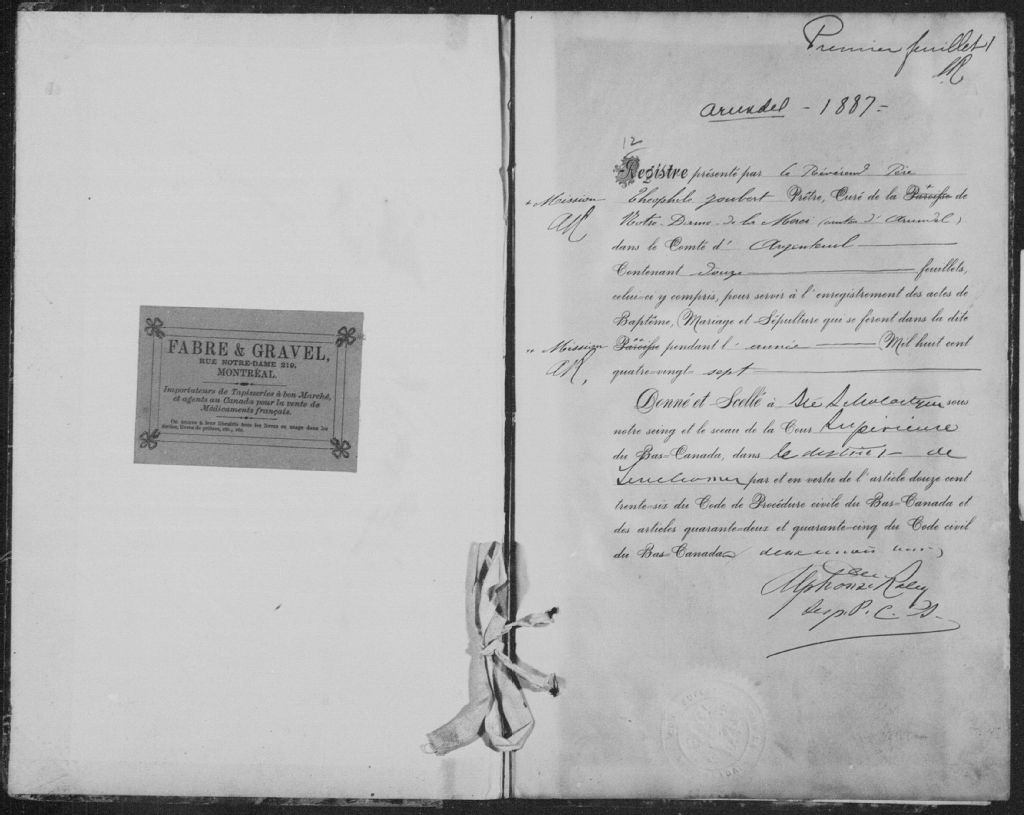 FABRE & GRAVEL,
RUE NOTRE-DAME 219,
MONTRÉAL.
Importateurs de Tapisseries à bon Marché,
et agents au Canada pour la vente de
Médicaments français.
On trouve à leur librairie tous les livres en usage dans les
écoles, livres de prières, etc., etc.
Premier feuillet
AR
Arundel - 1887 -
12
Registre présenté par le Révérend Père
+ Mission
Théophile Joubert Prêtre, Curé de la Paroisse de
AR
Notre-Dame-de-la-Merci (canton d'Arundel)
dans le Comté d'Argenteuil
Contenant douze feuillets,
celui-ci y compris, pour servir à l'enregistrement des actes de
Baptême, Mariage et Sépulture qui se feront dans la dite
Mission
Paroisse pendant l'année Mil huit cent
AR,
quatre-vingt sept
Donné et Scellé à Ste Scholastique sous
notre seing et le sceau de la Cour Supérieure
du Bas-Canada, dans le district de
Terrebonne par et en vertu de l'article douze cent
trente-six du Code de Procédure civile du Bas-Canada et
des articles quarante-deux et quarante-cinq du Code civil
du Bas-Canada
Alphonse
Dep. P. C. S.